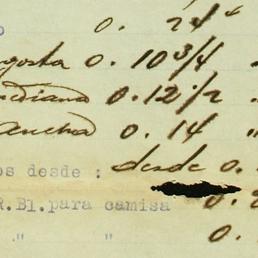 o 0. 24"
gosta 0. 10 3/4 "
ediana 0. 12 1/2 "
ancha 0. 14 "
os desde : desde 0.
R.Bl.para camisa 0. 2
" " 0.